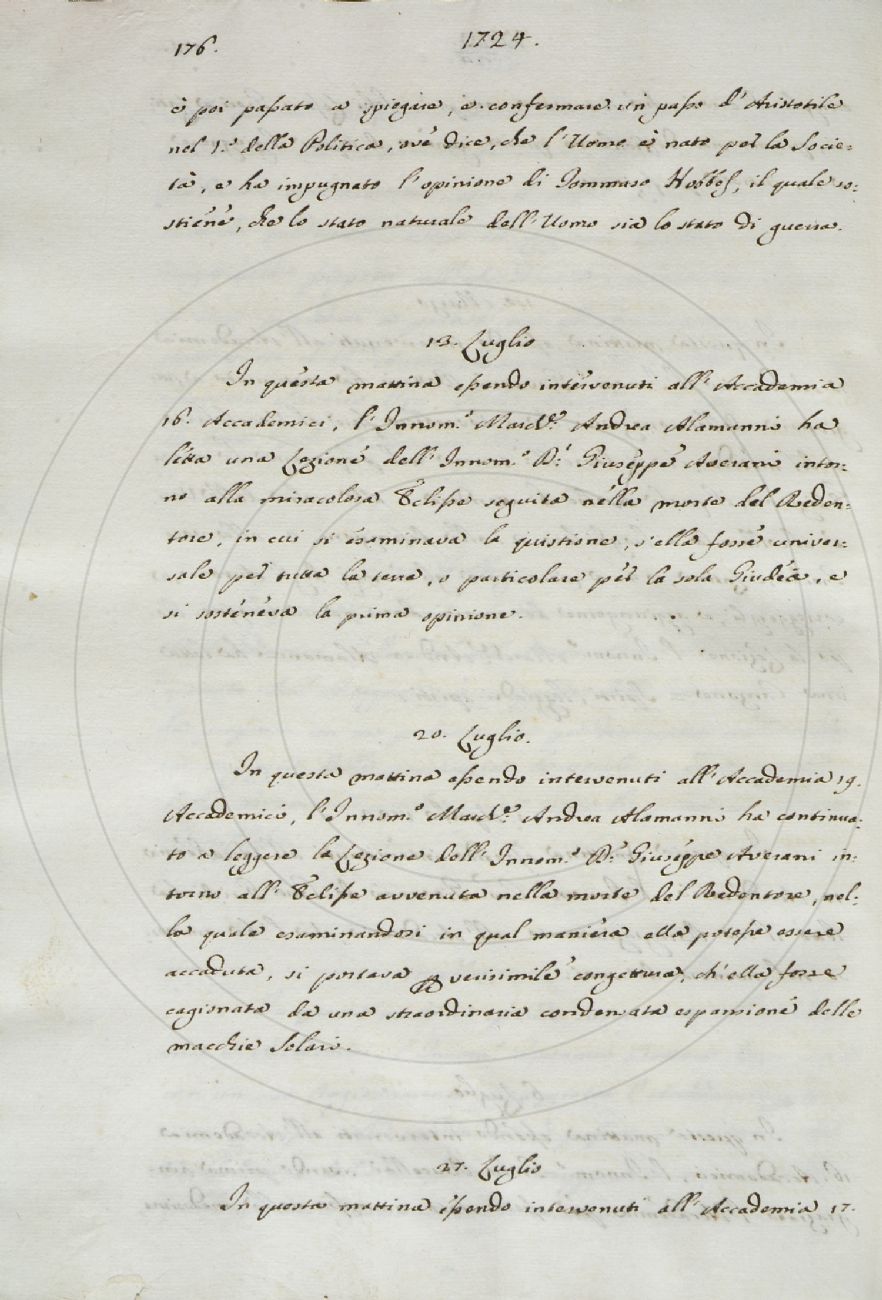 176.
1724.
è poi passato a spiegare, e confermare un passo d'Aristotile
nel 1.º della Politica, ove dice, che l'Uomo è nato per la Socie-
tà, e ha impugnato l'opinione di Tommaso Hobbes, il quale so-
stiene, che lo stato naturale dell'Uomo sia lo stato di guerra.
13. Luglio
In questa mattina essendo intervenuti all'Accademia
16. Accademici, l'Innom.º March.e Andrea Alamanni ha
letta una Lezione dell'Innom.º D.r Giuseppe Averani intor-
no alla miracolosa Eclisse seguita nella morte del Reden-
tore, in cui si esaminava la quistione, s'ella fosse univer-
sale per tutta la terra, o particolare per la sola Giudea, e
si sosteneva la prima opinione.
20. Luglio.
In questa mattina essendo intervenuti all'Accademia 19.
Accademici, l'Innom.º March.e Andrea Alamanni ha continua-
to a leggere la Lezione dell'Innom.º D.r Giuseppe Averani in-
torno all'Eclisse avvenuta nella morte del Redentore, nel-
la quale esaminandosi in qual maniera ella potesse essere
accaduta, si portava per verisimile congettura, ch'ella fosse
cagionata da una straordinaria condensata espansione delle
macchie Solari.
27. Luglio
In questa mattina essendo intervenuti all'Accademia 17.